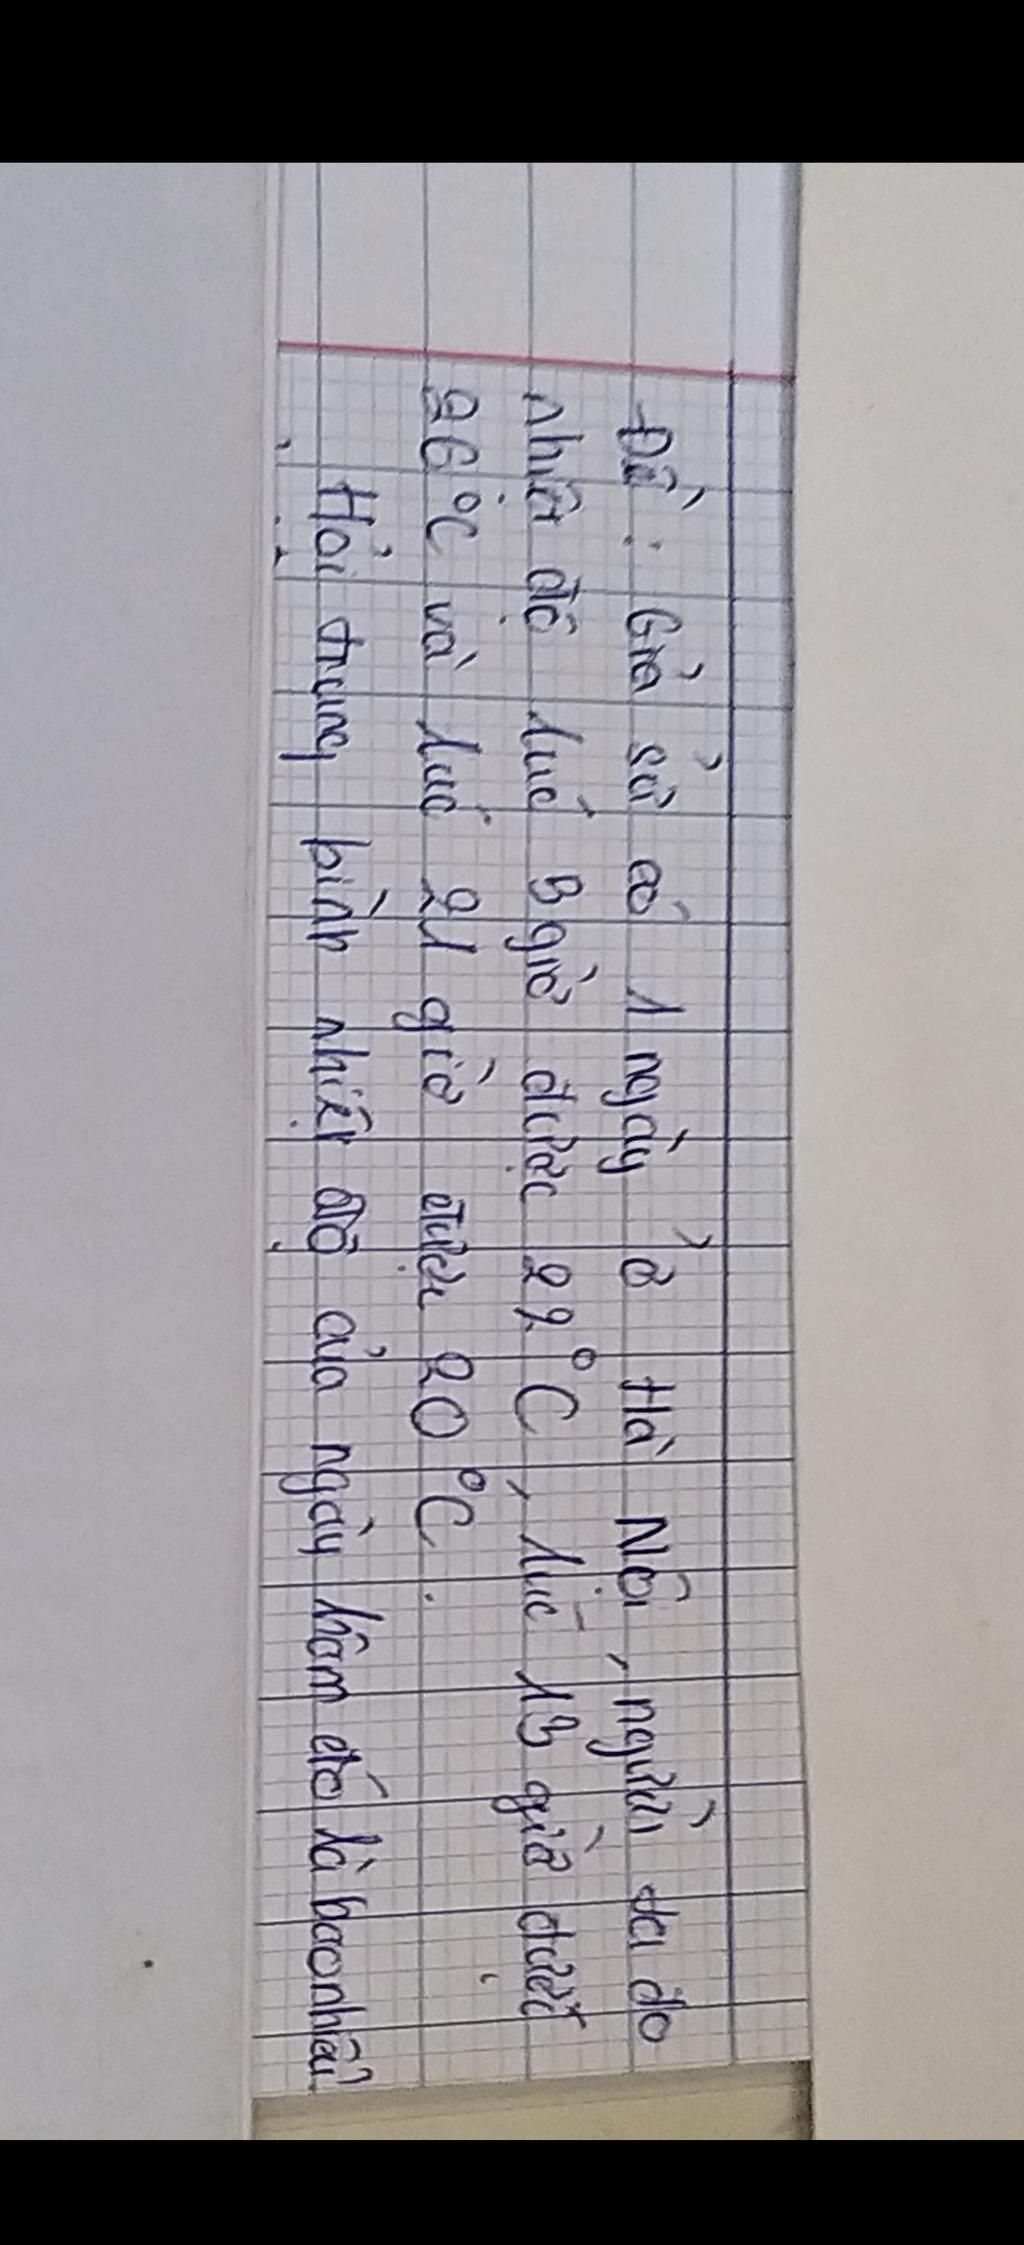 Đề : Giả sử có 1 ngày ở Hà Nội , người ta đo
nhiệt độ lúc 3 giờ được 22°C , lúc 13 giờ được
26°C và lúc 21 giờ được 20°C .
Hỏi trung bình nhiệt độ của ngày hôm đó là bao nhiêu?